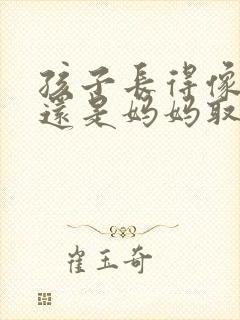 孩子長得像
還是媽媽取
崔玉奇